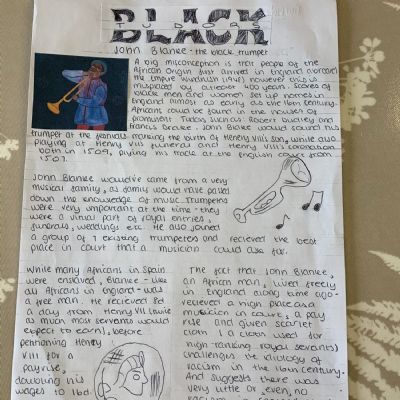 BLACK
TUDORS
John Blanke - the black trumpet
A big misconception is that people of the
African Origin first arrived in England onboard
the Empire Windrush (1948) however this is
misplaced by atleast 400 years. Scores of
black men and women set up homes in
England almost as early as the 16th century.
Africans could be found in the houses of
prominent Tudors such as Robert Dudley and
Francis Drake. John Blanke would sound his
trumpet at the festivals marking the birth of Henery VIII's son, while also
playing at Henry VII's funeral and Henry VIII's coronation
both in 1509, plying his trade at the English court from
1507.
John Blanke would've came from a very
musical family, as family would have passed
down the knowledge of music. Trumpets
were very important at the time - they
were a vital part of royal entries,
funerals, weddings etc. He also joined
a group of 7 existing trumpeters and recieved the best
place in court that a musician could ask for.
While many Africans in Spain
were enslaved, Blanke - like
all Africans in England - was
a free man. He recieved 8d
a day from Henry VII (twice
as much most servants would
expect to earn), before
petitioning Henry
VIII for a
payrise,
doubling his
wages to 16d.
The fact that John Blanke,
an African man, lived freely
in England along time ago -
recieved a high place as a
musician in court, a pay
rise and given scarlet
cloth (a cloth used for
high ranking royal servants)
challenges the idiology of
racism in the 16th century.
And suggests there was
very little or even, no